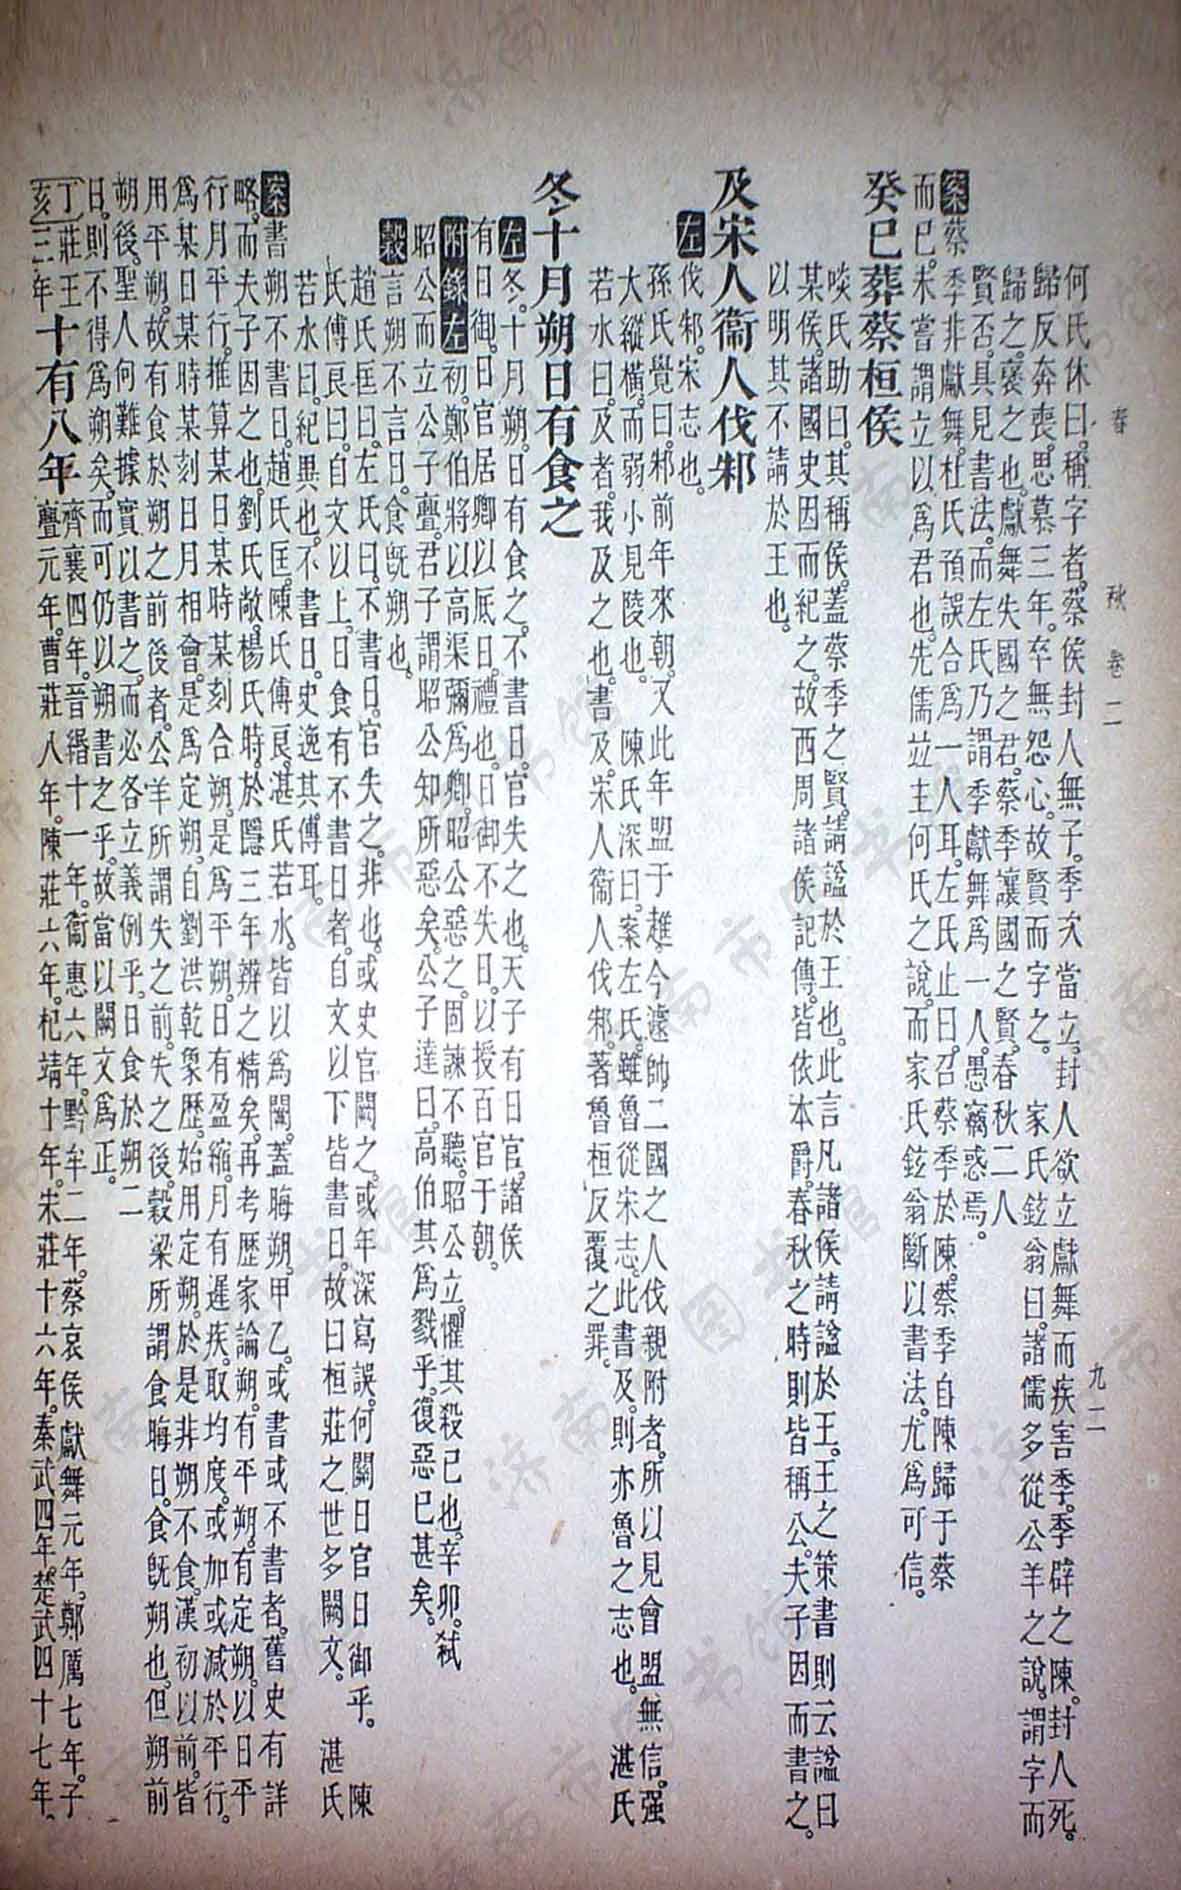 春秋 卷二 九二
何氏休曰。稱字者。蔡侯封人無子。季次當立。封人欲立獻舞而疾害季。季辟之陳。封人死。
歸反奔喪。思慕三年。卒無怨心。故賢而字之。 家氏鉉翁曰。諸儒多從公羊之說。謂字而
歸之。襃之也。獻舞失國之君。蔡季讓國之賢。春秋二人
賢否。具見書法。而左氏乃謂季獻舞爲一人。愚竊惑焉。
案蔡季非獻舞。杜氏預誤合爲一人耳。左氏止曰。召蔡季於陳。蔡季自陳歸于蔡
而已。未嘗謂立以爲君也。先儒竝主何氏之說。而家氏鉉翁斷以書法。尤爲可信。
癸巳葬蔡桓侯
啖氏助曰。其稱侯。蓋蔡季之賢。請諡於王也。此言凡諸侯請諡於王。王之策書則云諡曰
某侯。諸國史因而紀之。故西周諸侯記傳。皆依本爵。春秋之時則皆稱公。夫子因而書之。
以明其不請於王也。
及宋人衞人伐邾
左伐邾。宋志也。
孫氏覺曰。邾前年來朝。又此年盟于趡。今遽帥二國之人伐親附者。所以見會盟無信。强
大縱橫。而弱小見陵也。 陳氏深曰。案左氏。雖魯從宋志。此書及。則亦魯之志也。 湛氏
若水曰。及者。我及之也。書及。宋人衞人伐邾。著魯桓反覆之罪。
冬十月朔日有食之
左冬。十月朔。日有食之。不書日。官失之也。天子有日官。諸侯
有日御。日官居卿以厎日。禮也。日御不失日。以授百官于朝。
附錄左初。鄭伯將以高渠彌爲卿。昭公惡之。固諫不聽。昭公立。懼其殺已也。辛卯。弒
昭公而立公子亹。君子謂昭公知所惡矣。公子達曰。高伯其爲戮乎。復惡已甚矣。
穀言朔不言日。食旣朔也。
趙氏匡曰。左氏曰。不書日。官失之。非也。或史官闕之。或年深寫誤。何關日官日御乎。 陳
氏傅良曰。自文以上。日食有不書日者。自文以下皆書日。故曰桓莊之世多闕文。 湛氏
若水曰。紀異也。不書日。史逸其傳耳。
案書朔不書日。趙氏匡。陳氏傅良。湛氏若水。皆以爲闕。蓋晦朔。甲乙。或書或不書者。舊史有詳
略。而夫子因之也。劉氏敞。楊氏時。於隱三年辨之精矣。再考歷家論朔。有平朔。有定朔。以日平
行月平行。推算某日某時某刻合朔。是爲平朔。日有盈縮。月有遲疾。取均度。或加或減於平行。
爲某日某時某刻日月相會。是爲定朔。自劉洪乾象歷。始用定朔。於是非朔不食。漢初以前。皆
用平朔。故有食於朔之前後者。公羊所謂失之前。失之後。穀梁所謂食晦日。食旣朔也。但朔前
朔後。聖人何難據實以書之。而必各立義例乎。日食於朔二
日。則不得爲朔矣。而可仍以朔書之乎。故當以闕文爲正。
丁亥莊王三年十有八年齊襄四年。晉緡十一年。衞惠六年。黔牟二年。蔡哀侯獻舞元年。鄭厲七年。子
亹元年。曹莊八年。陳莊六年。杞靖十年。宋莊十六年。秦武四年。楚武四十七年。